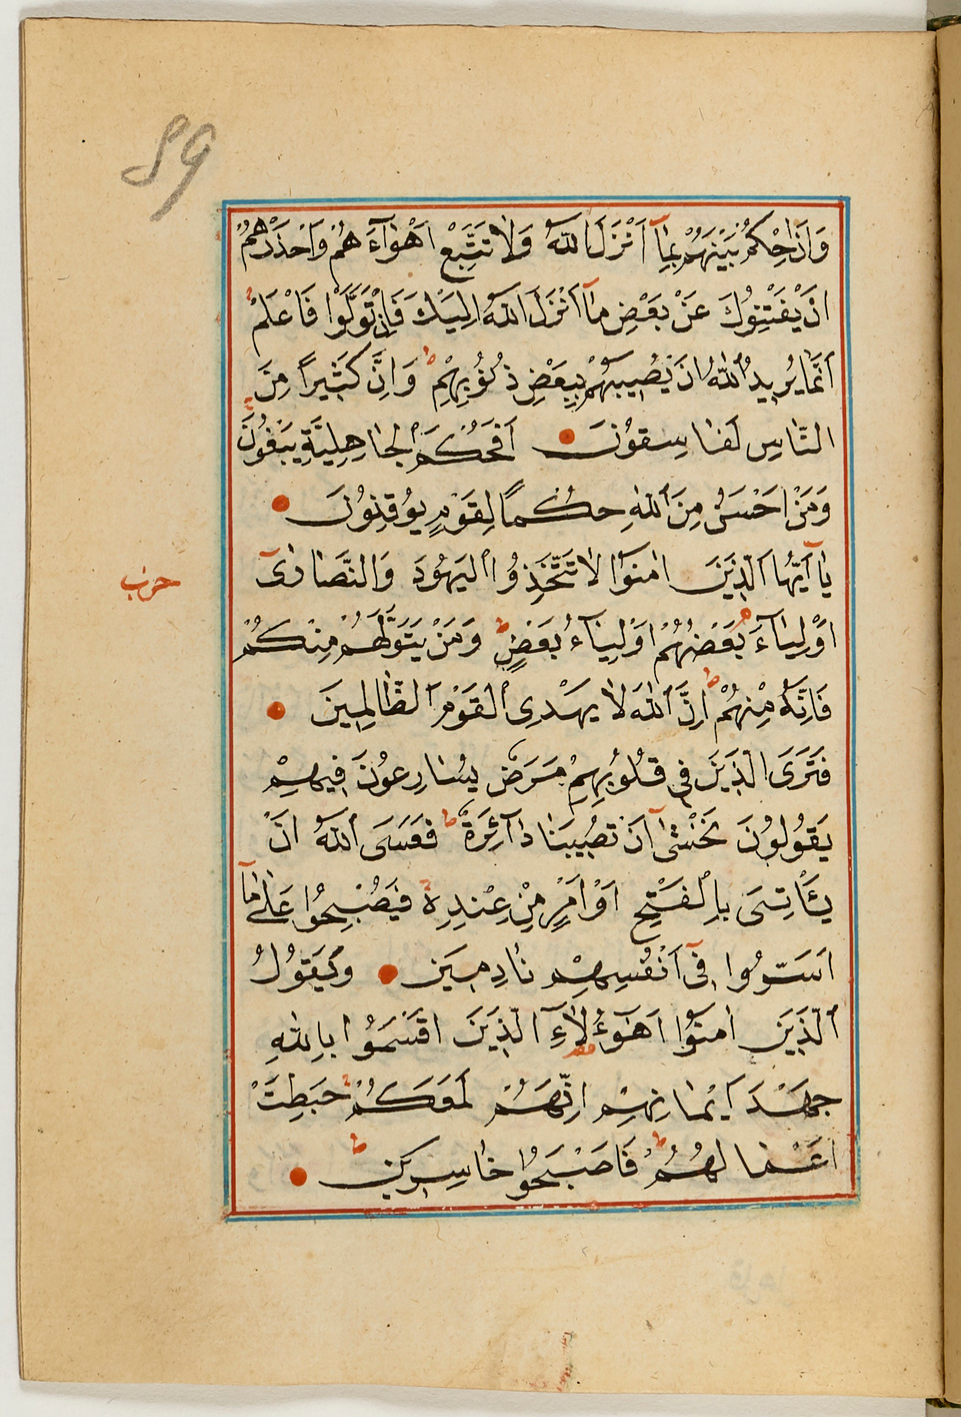 89
وَاَنِ احْكُمْ بَيْنَهُمْ بِمَآ اَنْزَلَ اللّٰهُ وَلَا تَتَّبِعْ اَهْوَآءَ هُمْ وَاحْذَرْهُمْ
اَنْ يَفْتِنُوكَ عَنْ بَعْضِ مَآ اَنْزَلَ اللّٰهُ اِلَيْكَ فَاِنْ تَوَلَّوْا فَاعْلَمْ
اَنَّمَا يُرِيدُ اللّٰهُ اَنْ يُصِيبَهُمْ بِبَعْضِ ذُنُوبِهِمْ ط وَاِنَّ كَثِيرًا مِنَ
النَّاسِ لَفَاسِقُونَ اَفَحُكْمَ الْجَاهِلِيَّةِ يَبْغُونَ
وَمَنْ اَحْسَنُ مِنَ اللّٰهِ حُكْمًا لِقَوْمٍ يُوقِنُونَ
يَآ اَيُّهَا الَّذِينَ اٰمَنُوا لَا تَتَّخِذُوا الْيَهُودَ وَالنَّصَارٰىٓ
حزب
اَوْلِيَآءَ بَعْضُهُمْ اَوْلِيَآءُ بَعْضٍ ط وَمَنْ يَتَوَلَّهُمْ مِنْكُمْ
فَاِنَّهُ مِنْهُمْ ط اِنَّ اللّٰهَ لَا يَهْدِى الْقَوْمَ الظَّالِمِينَ
فَتَرَى الَّذِينَ فِى قُلُوبِهِمْ مَرَضٌ يُسَارِعُونَ فِيهِمْ
يَقُولُونَ نَخْشٰىٓ اَنْ تُصِيبَنَا دَآئِرَةٌ ط فَعَسَى اللّٰهُ اَنْ
يَأْتِىَ بِالْفَتْحِ اَوْ اَمْرٍ مِنْ عِنْدِهِ فَيُصْبِحُوا عَلٰى مَآ
اَسَرُّوا فِىٓ اَنْفُسِهِمْ نَادِمِينَ وَيَقُولُ
الَّذِينَ اٰمَنُوٓا اَهٰٓؤُلَآءِ الَّذِينَ اَقْسَمُوا بِاللّٰهِ
جَهْدَ اَيْمَانِهِمْ اِنَّهُمْ لَمَعَكُمْ ط حَبِطَتْ
اَعْمَالُهُمْ ط فَاَصْبَحُوا خَاسِرِينَ ط